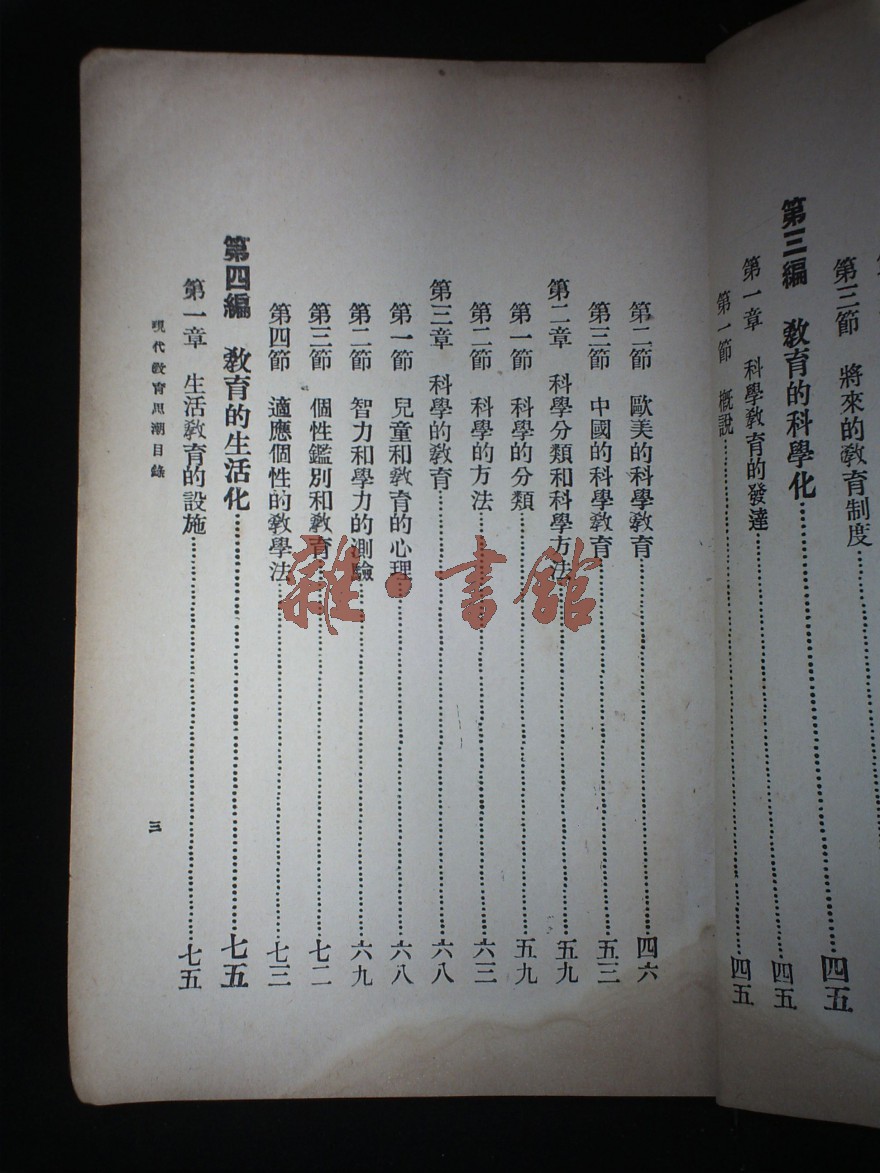 第三節　將來的教育制度
第三編　教育的科學化……四五
第一章　科學教育的發達……四五
第一節　概說……四五
第二節　歐美的科學教育……四六
第三節　中國的科學教育……五三
第二章　科學分類和科學方法……五九
第一節　科學的分類……五九
第二節　科學的方法……六三
第三章　科學的教育……六八
第一節　兒童和教育的心理……六八
第二節　智力和學力的測驗……六九
第三節　個性鑑別和教育……七二
第四節　適應個性的教學法……七三
第四編　教育的生活化……七五
第一章　生活教育的設施……七五
現代教育思潮目錄
三
雜·書館